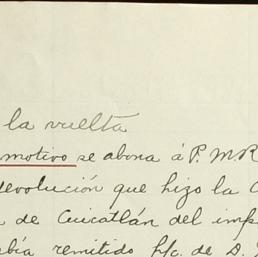 la vuelta
motivo se abona á P. M. R
devolución que hizo la C
de Cuicatlán del imp
bía remitido p/c. de D.